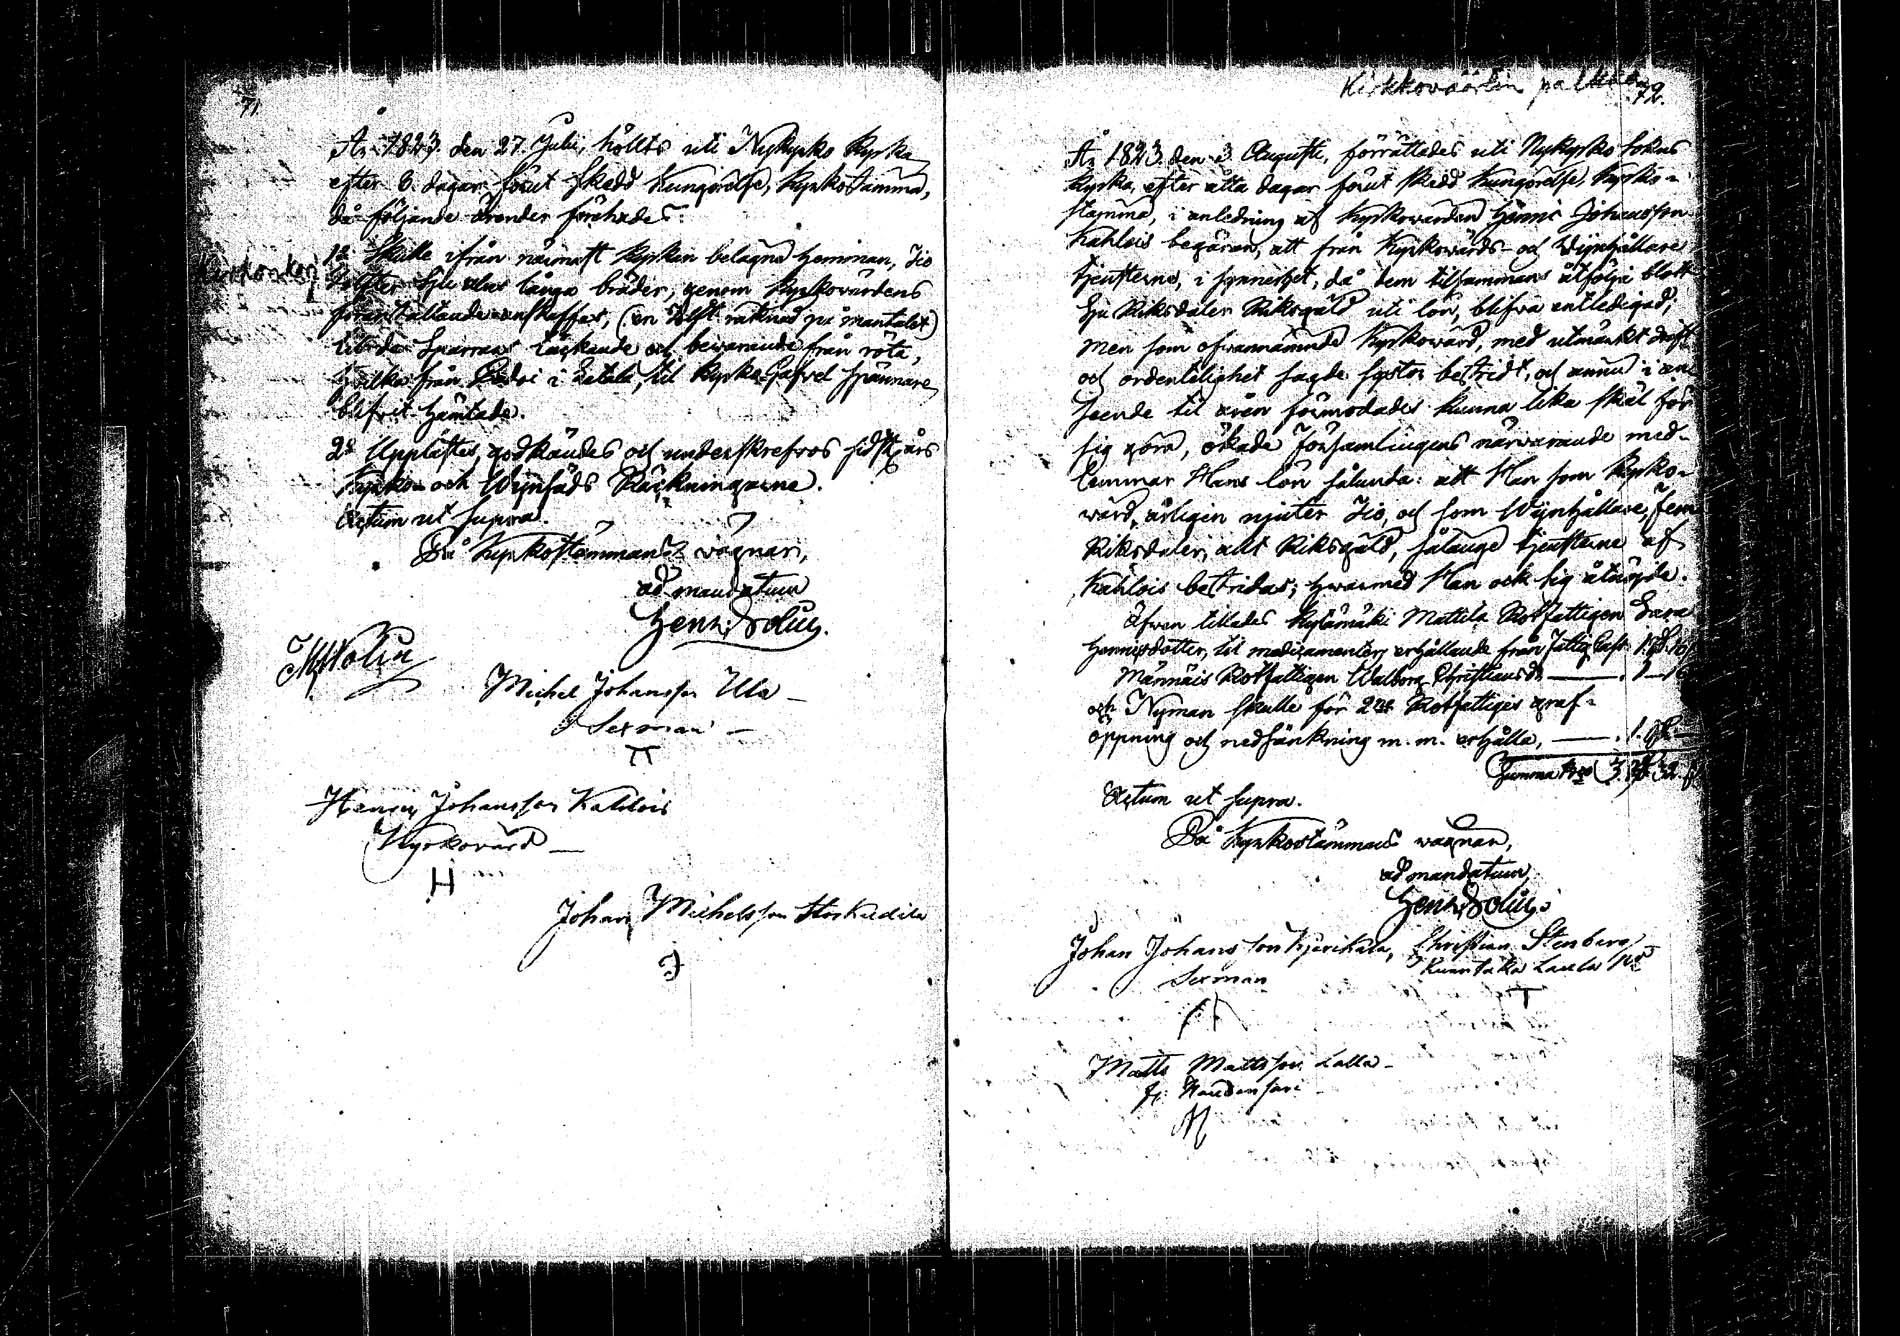 71
År 1823. den 27. Julii, hölts uti Nykyrko Kyrka
efter 6. dagar förut skedd Kungörelse, Kyrkostämma,
då följande ärender förehades:
1o Skulle ifrån närmast Kyrkan belägna Hemman, Tio
Tolfter Sju alns långa bräder, genom Kyrkovärdens
föranstaltande anskaffas, (en Tolft räknad på mantalet)
till de Sparrars täckande och bewarande från röta,
hwilka från i till Kyrko Gafvel spännare
blifvit hämtade.
2o Upplästes, godkändes och underskrefvos sidst års
Kyrko- och Wijnsäds Räckningarne.
Actum ut supra.
På Kyrkostämmans wägnar,
ad mandatum
Henr: Polin.
Michel Johansson Ula
Sexman
Henric Johansson Kahlois
Kyrkovärd
H
Johan Michelsson Storkudila
J
Kirkkoväärtin palkka
72.
År 1823. den 3. Augusti, förrättades uti Nykyrko Sokns
Kyrka, efter åtta dagar förut skedd Kungörelse, Kyrko-
stämma, i anledning af Kyrkowärden Henric Johansson
Kahlois begäran, att från Kyrkowärds- och Wijnhållare
tjensterne, i synnerhet, då dem tillsammans åtfölja blott
Sju Riksdaler Riksgäld uti lön, blifva entledigad;
Men som ofvannämnde Kyrkowärd, med utmärkt drift
och ordentelighet sagde sysslor bestridt, och ännu i an-
seende til åren förmodades kunna lika skäl för
sig göra, ökade Församlingens närwarande med-
lemmar Hans lön sålunda: att Han som Kyrko-
wärd, årligen njuter Tio, och som Wijnhållare, Fem
Riksdaler, allt Riksgäld, sålänge tjensterne af
Kahlois bestridas; hwarmed Han ock sig åtnögde.
Äfwen tillades Kylämäki Mattila Rotfattigen Sara
Henricsdotter, til medicamenters erhållande från Fattig Cass.
Männäis Rotfattigen Walborg Christiansdr
och Nyman skulle för 2ne Rotfattiges graf-
öppning och nedsänkning m. m. erhålla,
Summa
Actum ut supra.
På Kyrkostämmans wägnar,
ad mandatum
Henr: Polin.
Johan Johansson Hjerikala, Christian Stenberg
Sexman
T
Matts Mattsson Lalla
fr.
M